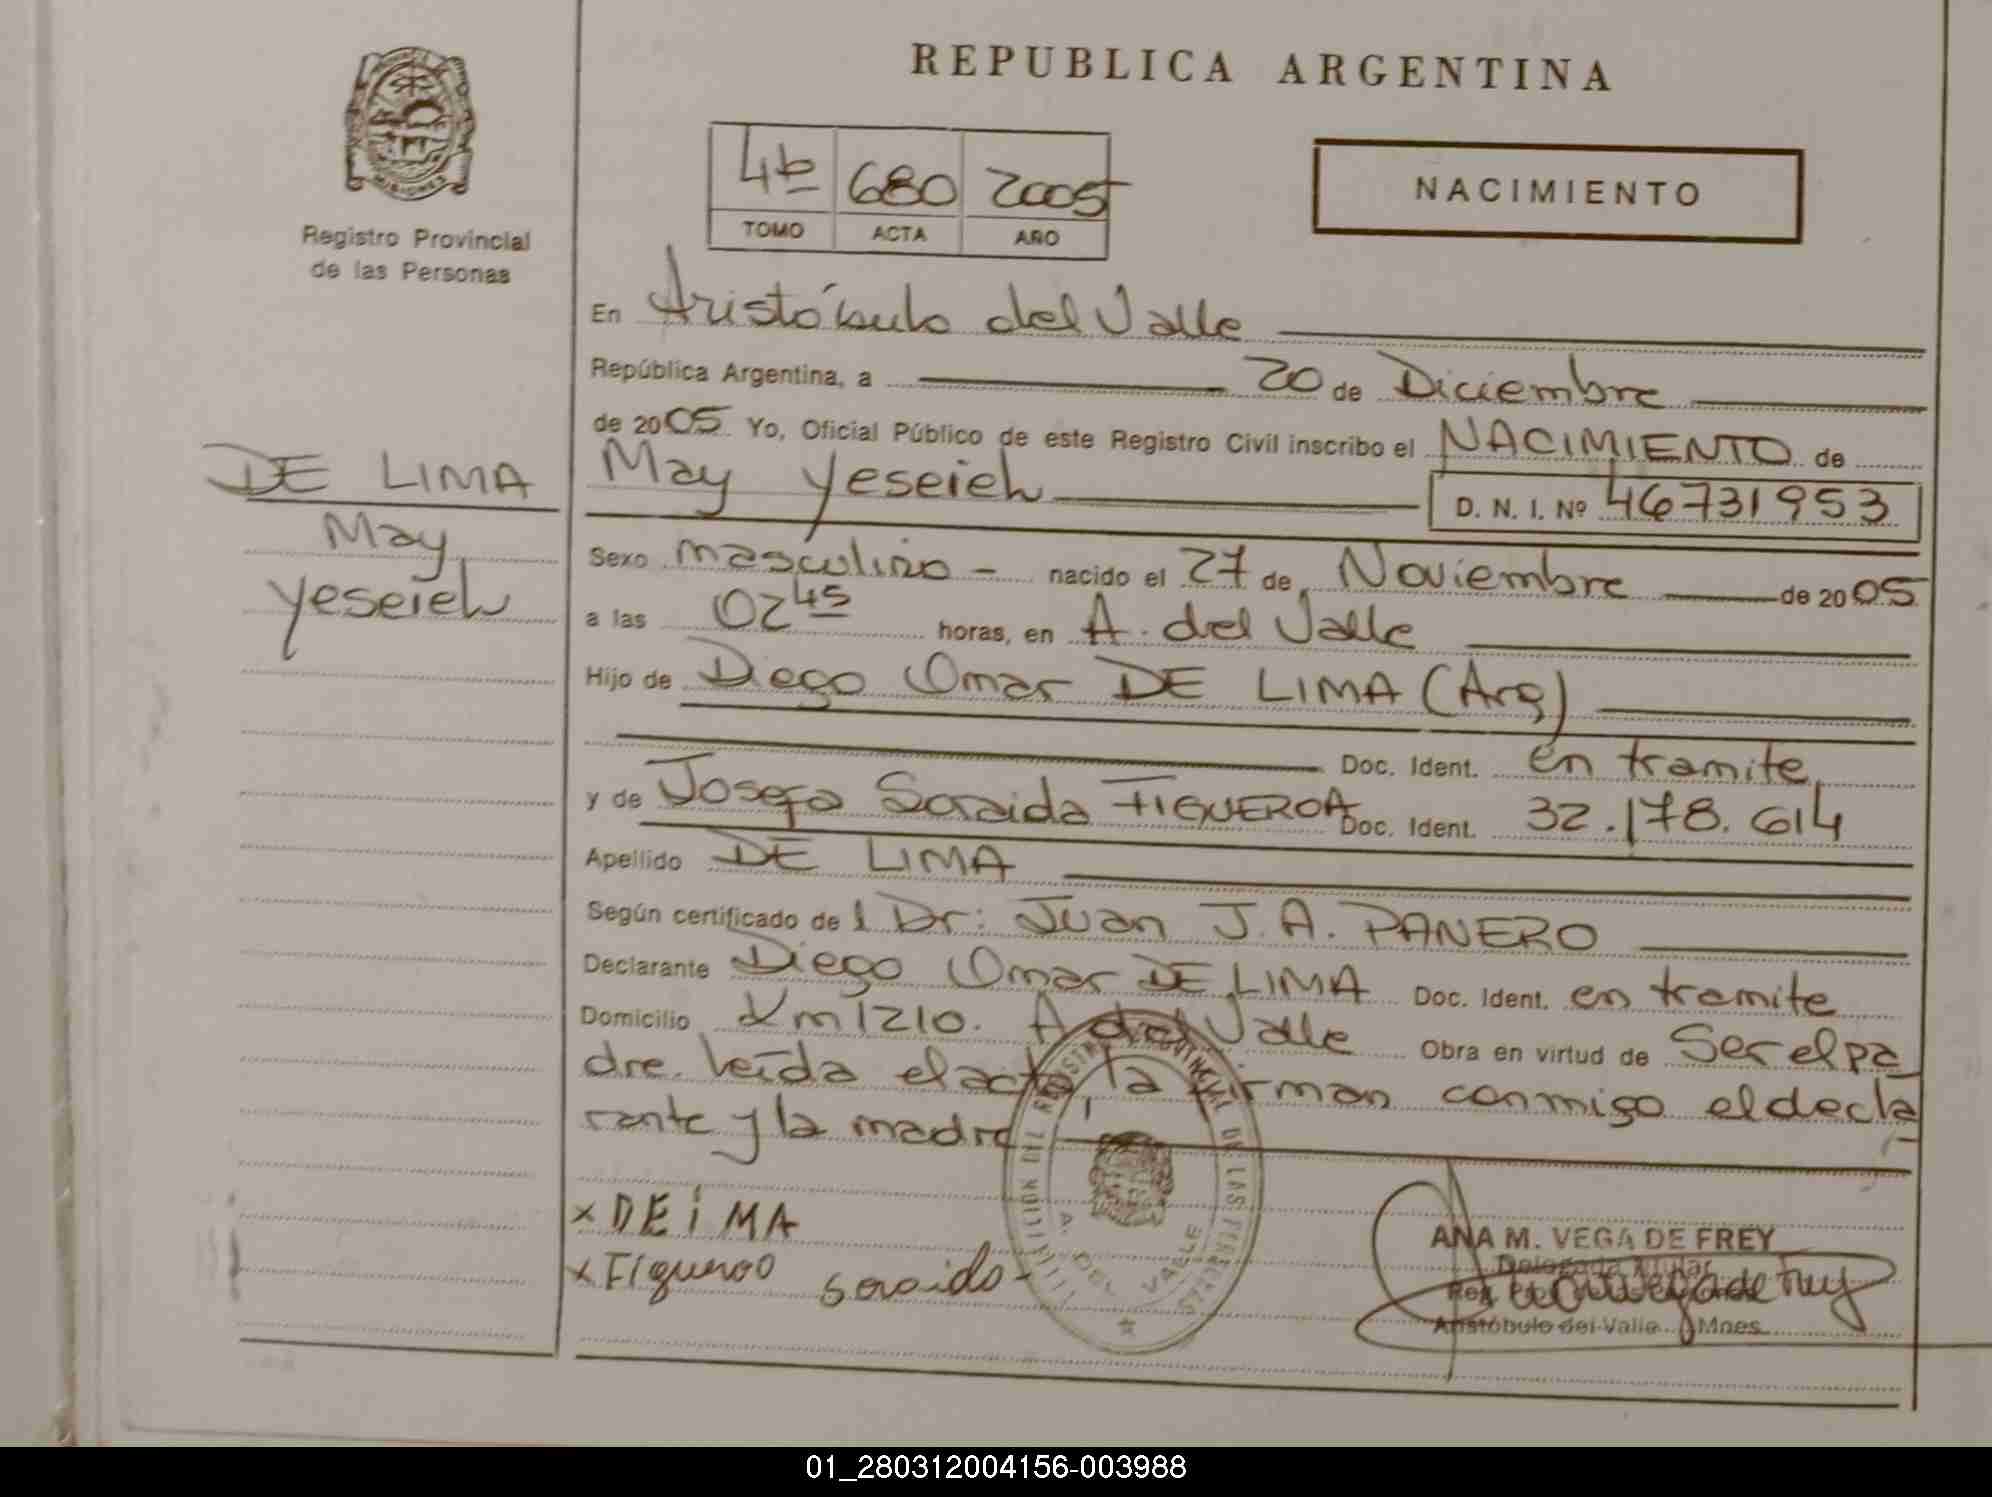 REPUBLICA ARGENTINA
MISIONES
Registro Provincial
de las Personas
4b 680 2005
TOMO ACTA AÑO
NACIMIENTO
DE LIMA
May
Yeseieh
En Aristóbulo del Valle
República Argentina, a 20 de Diciembre
de 2005 Yo, Oficial Público de este Registro Civil inscribo el NACIMIENTO de
May Yeseieh
D. N. I. Nº 46731953
Sexo masculino - nacido el 27 de Noviembre de 2005
a las 02 45 horas, en A. del Valle
Hijo de Diego Omar DE LIMA (Arg)
Doc. Ident. en tramite
y de Josefa Soraida FIGUEROA Doc. Ident. 32.178.614
Apellido DE LIMA
Según certificado del Dr: Juan J. A. PANERO
Declarante Diego Omar DE LIMA Doc. Ident. en tramite
Domicilio Km 1210. A del Valle Obra en virtud de Ser el pa
dre. leída el acta, la firman conmigo el decla
rante y la madre
x DE iMA
x Figueroo Soraido-
A. DEL VALLE
ANA M. VEGA DE FREY
Delegada Titular
Aristóbulo del Valle Mnes
01_280312004156-003988